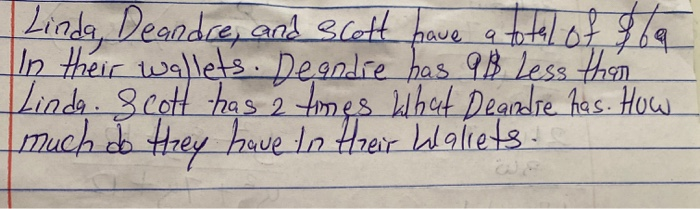 Linda, Deandre, and Scott have a total of $69
In their wallets. Deandre has 9$ Less than
Linda. Scott has 2 times What Deandre has. How
much do they have In their Wallets.